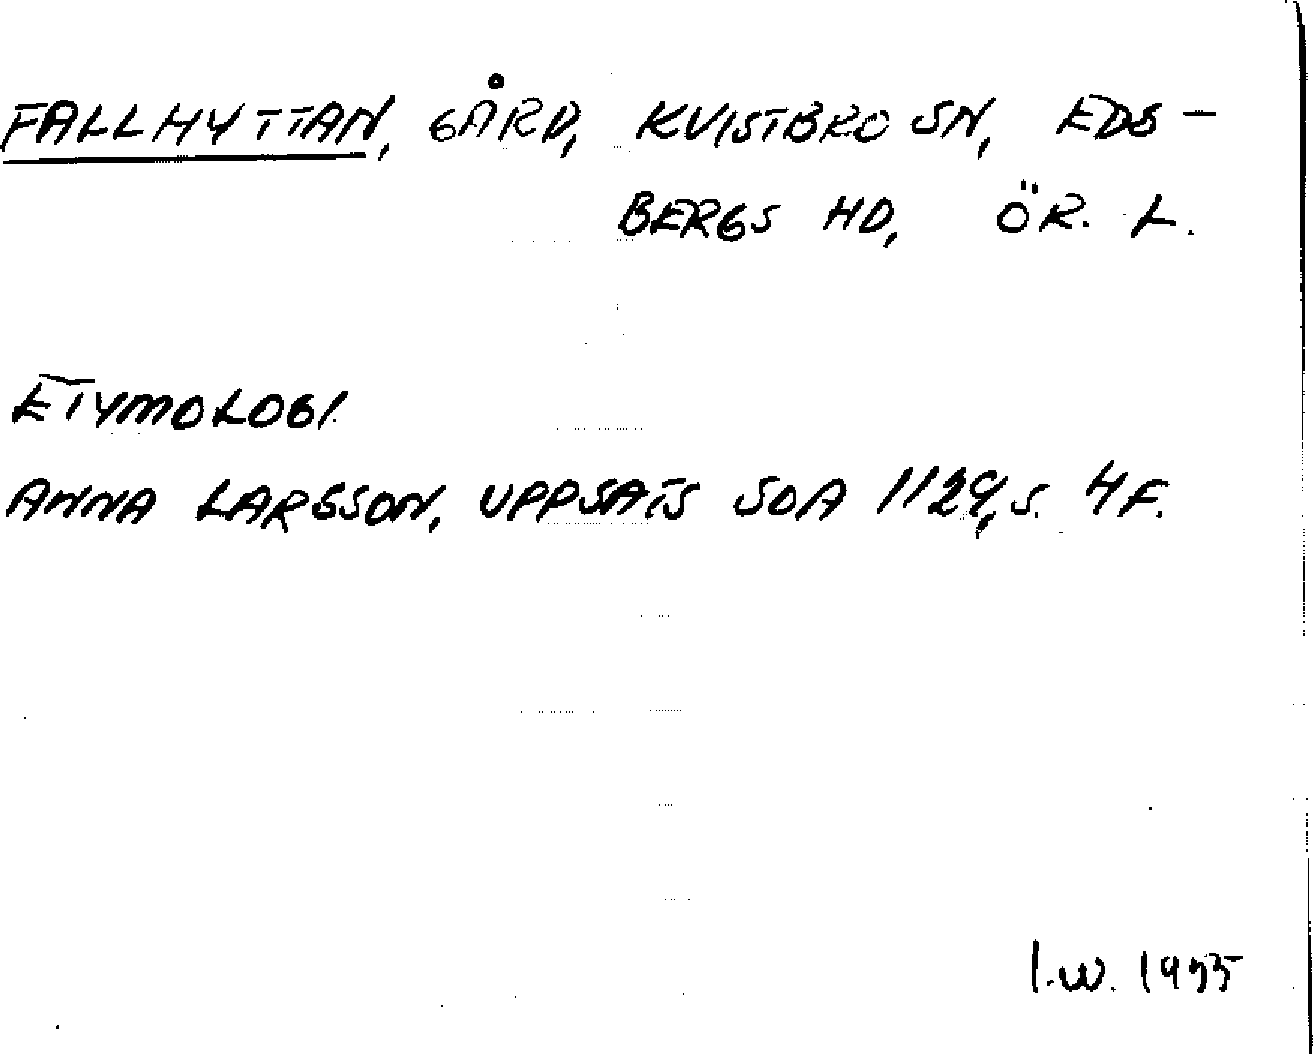 FALLHYTTAN, GÅRD, KVISTBRO SN, EDS-
BERGS HD, ÖR. L.
ETYMOLOGI
ANNA LARSSON, UPPSATS SOA 1129, S. 4F.
I.W.